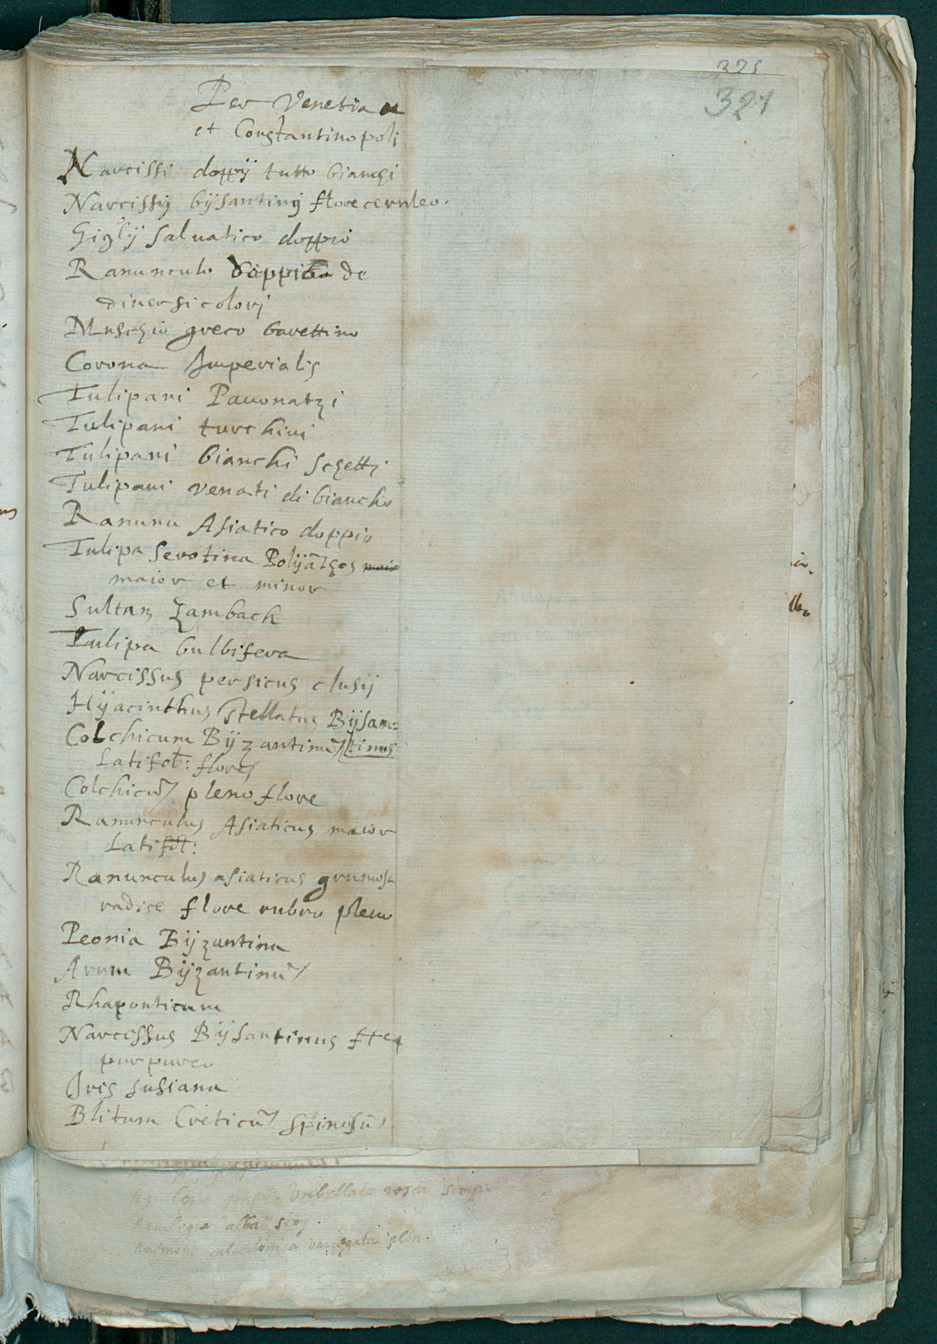 325
321
Per Venetia
et Constantinopoli
Narcissi doppij tutto bianchi
Narcissij bijsantinij flore ceruleo.
Giglij saluatico doppio
Ranunculo doppio de
diuersi colorj
Muschio greco barettino
Corona Imperialis
Tulipani Pauonatzi
Tulipani turchini
Tulipani bianchi schetti
Tulipani venati di biancho
Ranunu Asiatico doppio
Tulipa serotina Polijãthos
maior et minor
Sultan Zambach
Tulipa bulbifera
Narcissus persicus clusij
Hijacinthus stellatus Bijsan=
tinus
Colchicum Bijzantinũ
Latifol: flore
Colchicũ pleno flore
Ranunculus Asiaticus maior
Latifol:
Ranunculus asiaticus grumosa
radice flore rubro pleno
Peonia Bijzantina
Arum Bijzantinũ
Rhaponticum
Narcissus Bijsantinus
purpureo
Iris susiana
Blitum Creticũ spinosũ